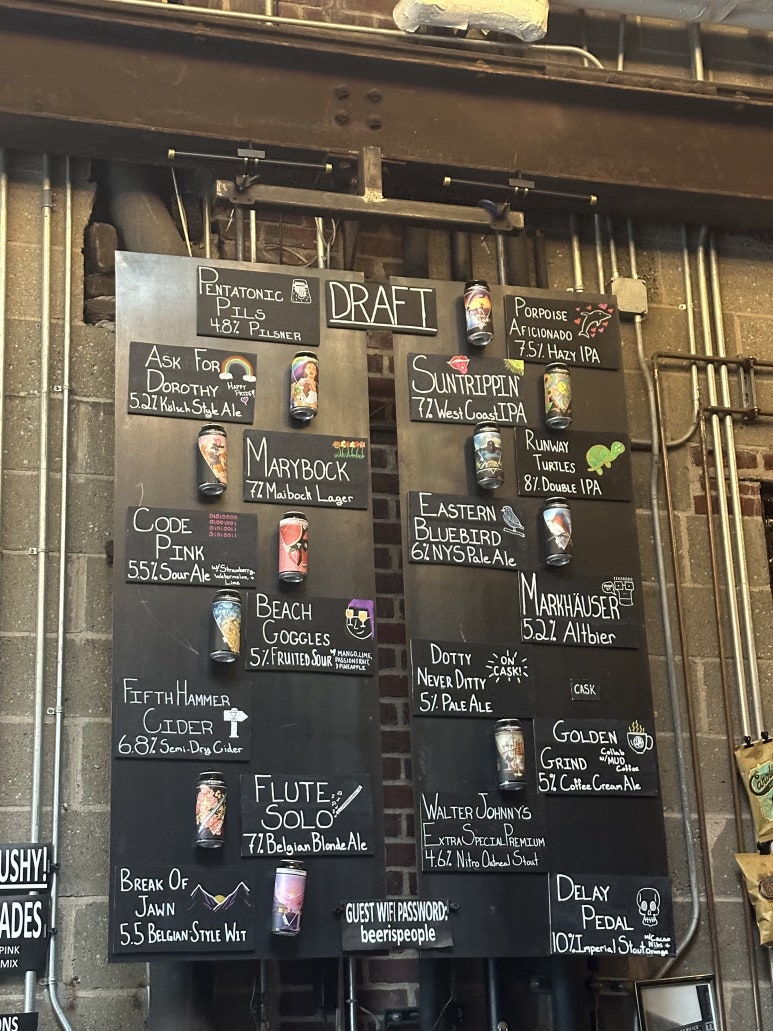 DRAFT
PENTATONIC
PILS
4.8% PILSNER
ASK FOR
DOROTHY
HAPPY
PRIDE!
5.2% Kölsch Style Ale
MARYBOCK
7% Maibock Lager
CODE
PINK
01010001
01010011
01010011
5.5% Sour Ale
w/Strawberry,
Watermelon, +
Lime
BEACH
GOGGLES
5% FRUITED SOUR
w/ MANGO, LIME,
PASSIONFRUIT,
PINEAPPLE
FIFTH HAMMER
CIDER
6.8% Semi-Dry Cider
FLUTE
SOLO
7% Belgian Blonde Ale
BREAK OF
JAWN
5.5 BELGIAN-STYLE WIT
PORPOISE
AFICIONADO
7.5% HAZY IPA
SUNTRIPPIN'
7% West Coast IPA
RUNWAY
TURTLES
8% DOUBLE IPA
EASTERN
BLUEBIRD
6% NYS Pale Ale
MARKHÄUSER
5.2% Altbier
DOTTY
NEVER DITTY
5% PALE ALE
ON
CASK!
CASK
GOLDEN
GRIND
Collab
w/ MUD
Coffee
5% Coffee Cream Ale
WALTER JOHNNY'S
EXTRA SPECIAL PREMIUM
4.6% Nitro Oatmeal Stout
DELAY
PEDAL
10% Imperial Stout
w/Cacao
Nibs +
Orange
GUEST WIFI PASSWORD:
beerispeople
USHY!
ADES
PINK
MIX
ONS